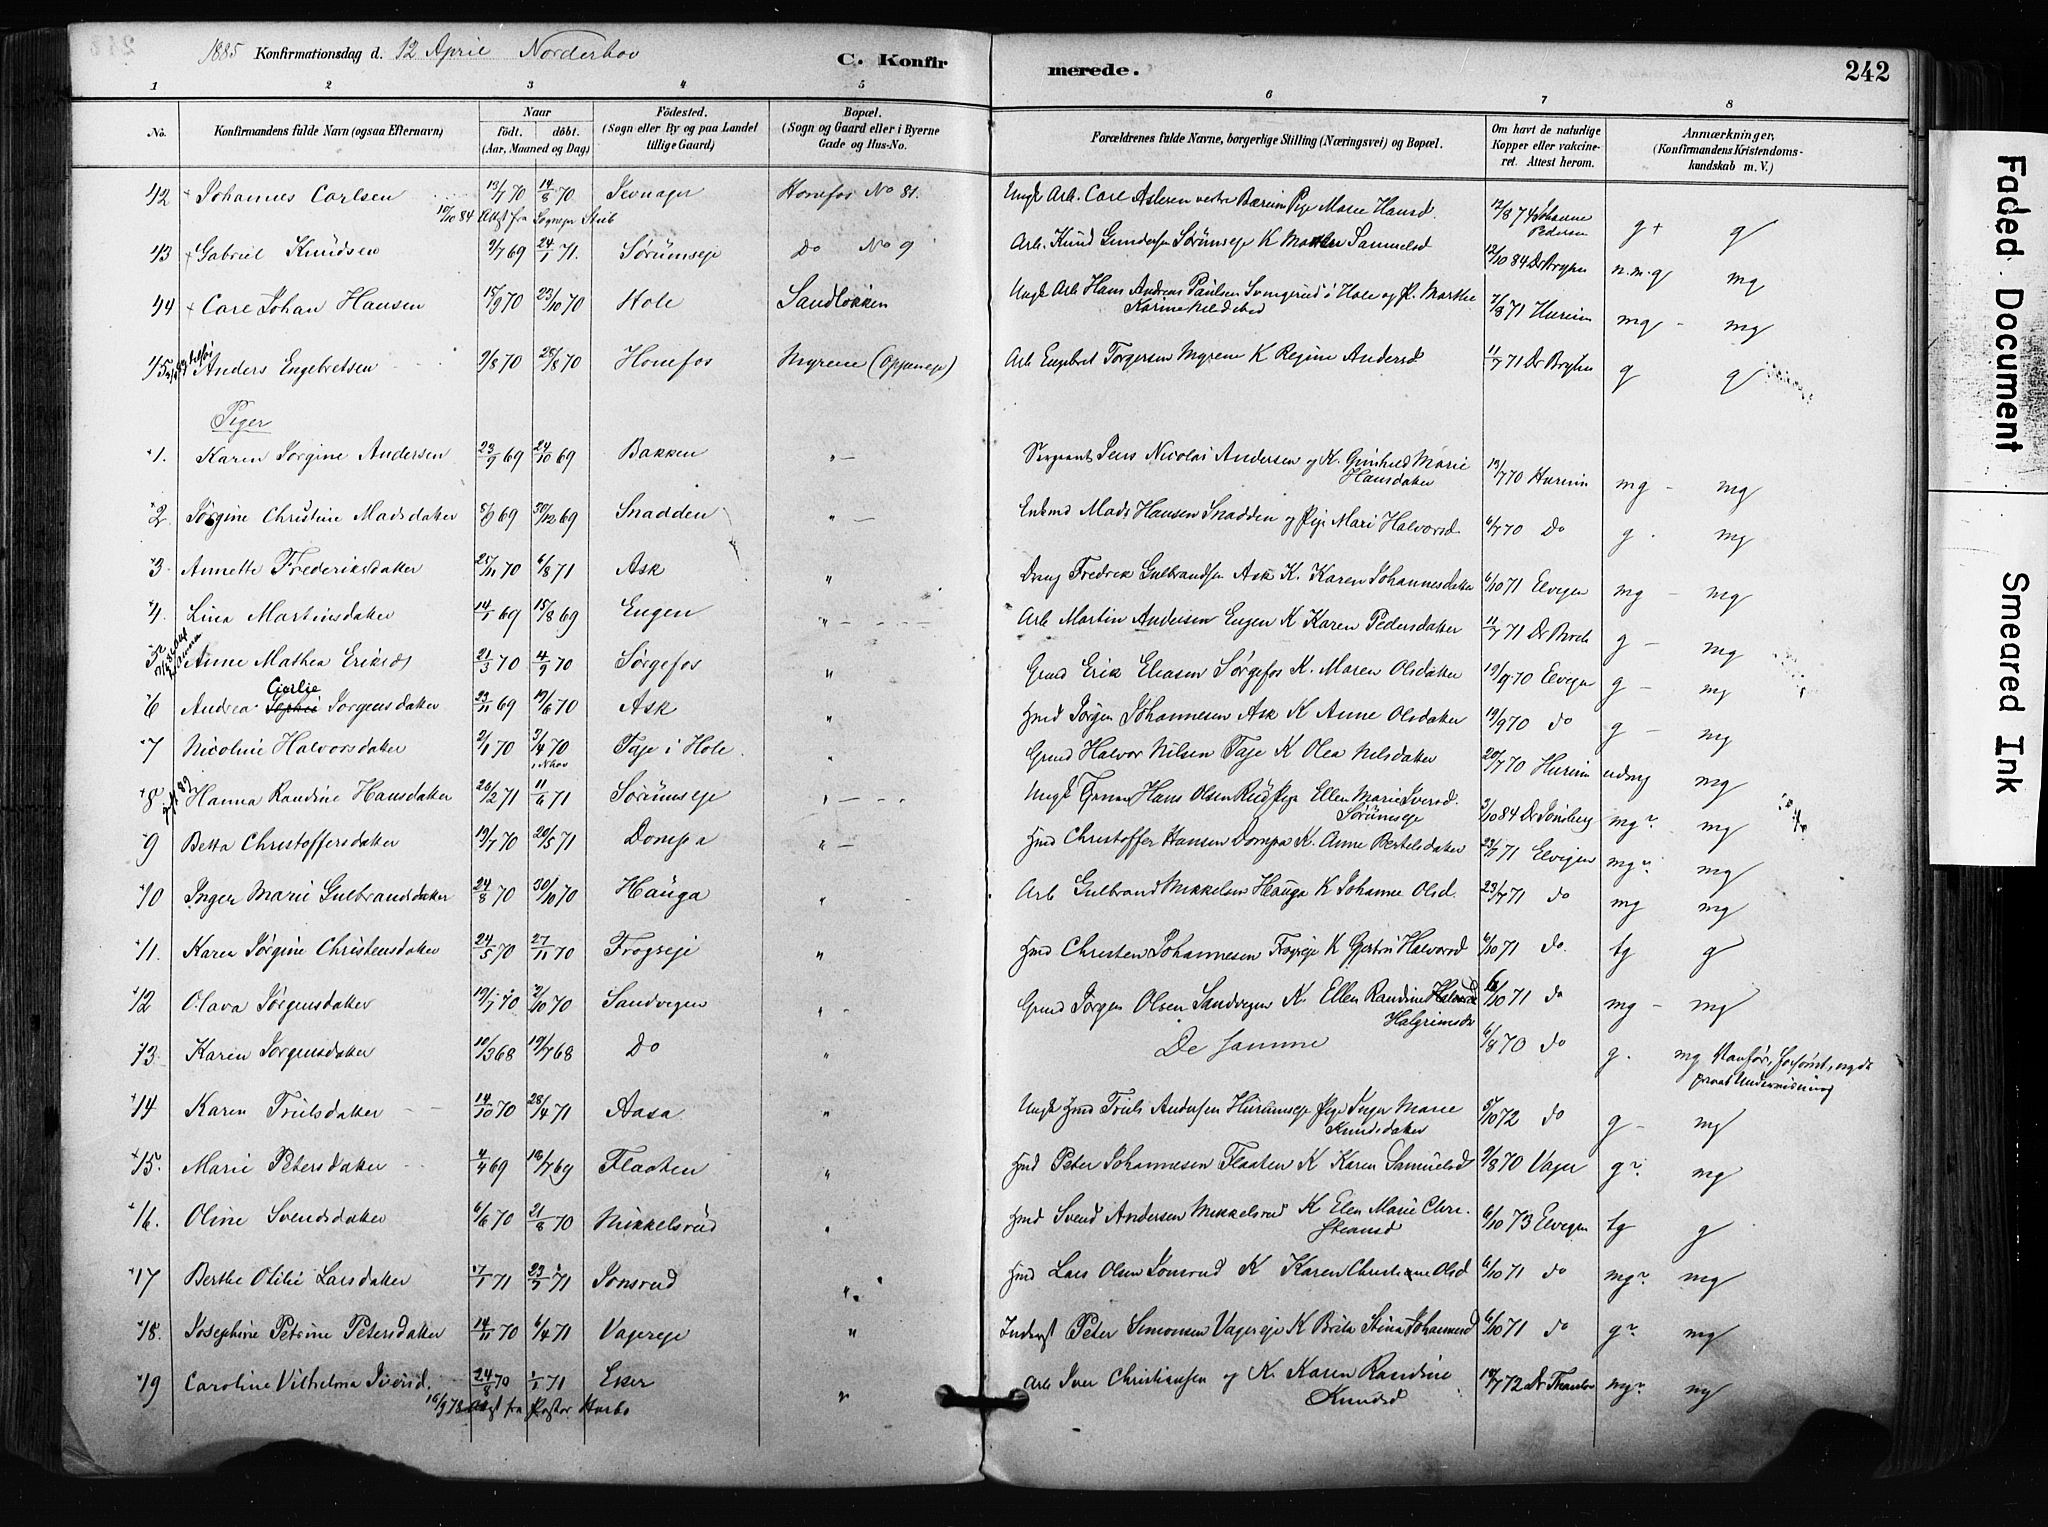 1885 Konfirmationsdag d. 12 April Norderhov C. Konfirmerede. 242
1 2 3 4 5 6 7 8
No. Konfirmandens fulde Navn (ogsaa Efternavn) Naar født. døbt. (Aar, Maaned og Dag) Fødested. (Sogn eller By og paa Landet tillige Gaard) Bopæl. (Sogn og Gaard eller i Byerne Gade og Hus-No. Forældrenes fulde Navne, borgerlige Stilling (Næringsvei) og Bopæl. Om havt de naturlige Kopper eller vakcineret. Attest herom. Anmærkninger, (Konfirmandens Kristendomskundskab m. V.)
42 Johannes Carlsen 13/7 70 14/8 70 Jevnager Hønefos No 81. Ungk Arb. Carl Aslesen vestre Bærum Pige Marie Hansd. 12/8 74 Johanne Pedersen g + g
10/10 84 Attst fra Sognepr
43 Gabriel Knudsen 9/7 69 24/1 71. Sørumseje Do No 9 Arb. Knud Gundersen Sørumseje K Marthe Samuelsd 12/10 84 Dr Bryhn n.m.g mg
44 Carl Johan Hansen 15/9 70 23/10 70 Hole Sandløkken Ungk Arb Hans Andreas Paulsen i Hole og P. Marthe 7/8 71 Hurum mg - mg
45 Anders Engebretsen 9/8 70 28/8 70 Hønefos Myrene (Oppeneje) Arb Engebret Torgersen Myrene K Regine Andersd 11/7 71 Dr Bryhn g g
Piger
1. Karen Jørgine Andersen 23/9 69 24/10 69 Bakken " — Sergeant Jens Nicolai Andersen og K. Gunhild Marie Hansdatter 13/7 70 Hurum mg - mg
2. Jørgine Christine Madsdatter 5/9 69 30/12 69 Snadden " — Enkmd Mads Hansen Snadden og Pige Mari Halvorsd 6/7 70 Do g . mg
3. Annette Frederiksdatter 25/11 70 6/8 71 Ask " Fredrik Gulbrandsen Ask K. Karen Johannesdatter 6/10 71 Elvigen mg - mg
4. Lina Martinsdatter 14/1 69 15/8 69 Engen " Arb Martin Andersen Engen K Karen Pedersdatter 11/7 71 Dr g - mg
5. Anne Mathea Eriksd 21/3 70 4/9 70 Sørgefos " Grmd Erik Eliasen Sørgefos K. Maren Olsdatter 19/9 70 Elvigen g - mg
6 Andrea Carlie Sophie Jørgensdatter 23/11 69 19/6 70 Ask " Hmd Jørgen Johannesen Ask K Anne Olsdatter 19/9 70 do g - mg
7 Nicoline Halvorsdatter 2/1 70 3/4 70 i Nhov Fagi i Hole " Grmd Halvor Nilsen Fage K Olea Nelsdatter 20/7 70 Hurum mg
8 Hanna Randine Hansdatter 26/2 71 11/6 71 Sørumseje " — Ungk Hans Olsen Rud Pige Ellen Marie Iversd. Sørumseje 3/10 84 Dr Tønsberg mg? mg
9 Betta Christoffersdatter 19/7 70 20/5 71 Domspa " — Hmd Christoffer Hansen Domspa K. Anne Bertelsdatter 23/7 71 Elvigen mg? mg
10 Inger Marie Gulbrandsdatter 24/8 70 30/10 70 Hauga " Arb Gulbrand Mikkelsen Hauga K Johanne Olsd. 23/7 71 do mg mg
11. Karen Jørgine Christensdatter 24/5 70 27/11 70 Frogseje " Hmd Christen Johannesen Frogseje K Gjertru Halvorsd 6/10 71 do. tg g
12 Olava Jørgensdatter 19/7 70 2/10 70 Sandvegen " Grmd Jørgen Olsen Sandvegen K. Ellen Randine Halgrimsd 6/10 71 do mg - mg
13. Karen Jørgensdatter 10/3 68 19/7 68 Do " De samme 6/8 70 do g. mg Vanfør, forsømt, nydt privat Undervisning
14 Karen Truilsdatter 14/10 70 28/4 71 Aasa " Ungk Hmd Truls Andersen Hurumseje Pige Inger Marie Knudsdatter 5/10 72 do g - mg
15. Marie Petersdatter 4/4 69 18/7 69 Flaaten " Hmd Peter Johannesen Flaaten K Karen Samuelsd 9/8 70 Vager g? mg
16. Oline Svendsdatter 6/6 70 21/8 70 Mikkelsrud " Hmd Svend Andersen Mikkelsrud K Elen Marie Christiansd 6/10 73 Elvigen tg g
17 Berthe Otilie Larsdatter 17/1 71 23/7 71 Jonsrud " Hmd Lars Olsen Jonsrud K Karen Christiane Olsd 6/10 71 do mg? mg
18. Josephine Petrine Petersdatter 14/11 70 6/4 71 Vagereje " Inderst Peter Simonsen Vagereje K Brita Stina Johannesd 6/10 71 do g? mg
19 Caroline Vilhelmina Iversd. 24/8 70 1/1 71 Eker " Arb Iver Christiansen og K. Karen Randine Knudsd 18/7 72 Dr mg? mg
16/9 78 Attst fra Pastor
Faded Document
Smeared Ink